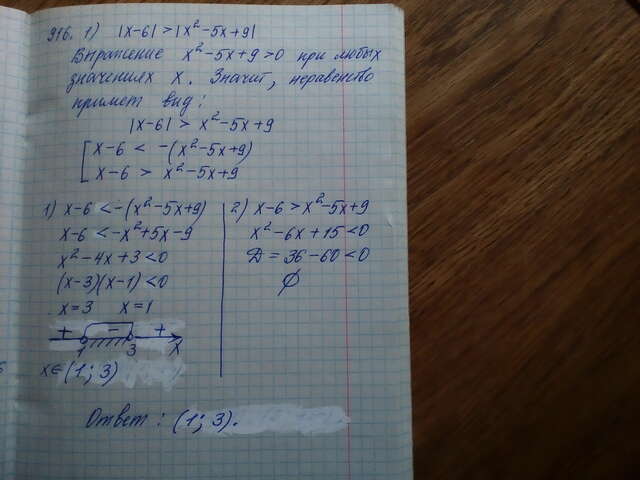 916. 1) |x-6| > |x²-5x+9|
Выражение x²-5x+9>0 при любых
значениях x. Значит, неравенство
примет вид:
|x-6| > x²-5x+9
[ x-6 < -(x²-5x+9)
x-6 > x²-5x+9
1) x-6 < -(x²-5x+9)
x-6 < -x²+5x-9
x²-4x+3<0
(x-3)(x-1)<0
x=3 x=1
+ - +
1 3 x
x∈(1; 3)
2) x-6 > x²-5x+9
x²-6x+15<0
D = 36-60<0
∅
Ответ: (1; 3).